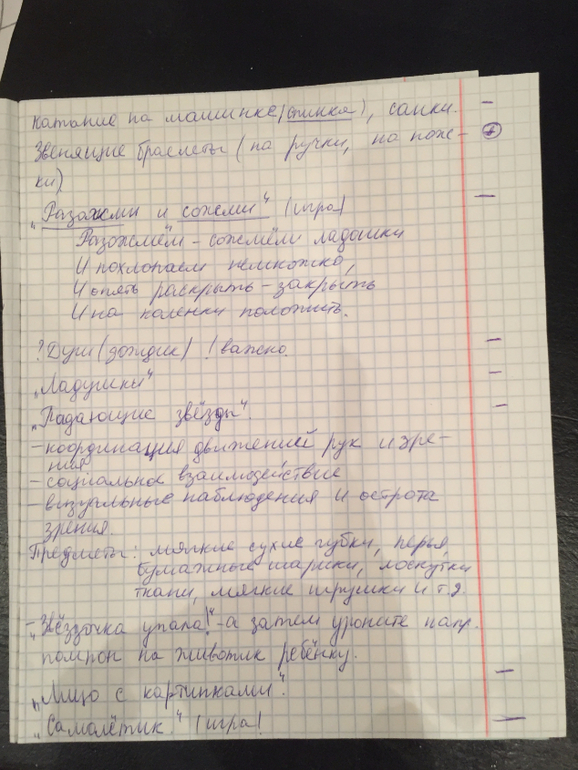 катание на машинке (спинка), санки. -
Звенящие браслеты (на ручки, на нож- +
ки)
„Разожми и сожми" (игра) -
Разожмём - сожмём ладошки
И похлопаем немножко,
И опять раскрыть - закрыть
И на коленки положить.
? Душ (дождик) ! важно. -
„Ладушки" -
„Падающие звёзды". -
- координация движений рук и зре-
ния
- социальное взаимодействие
- визуальные наблюдения и острота
зрения.
Предметы: мягкие сухие губки, перья,
бумажные шарики, лоскутки
ткани, мягкие игрушки и т.д.
- „Звёздочка упала!" - а затем уроните напр.
помпон на животик ребёнку.
„Лицо с картинками". -
„Самолётик." (игра) -